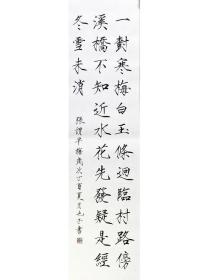 一對寒梅白玉條迴臨村路傍
溪橋不知近水花先發疑是經
冬雪未消
張謂早梅歲次丁酉夏月也子書